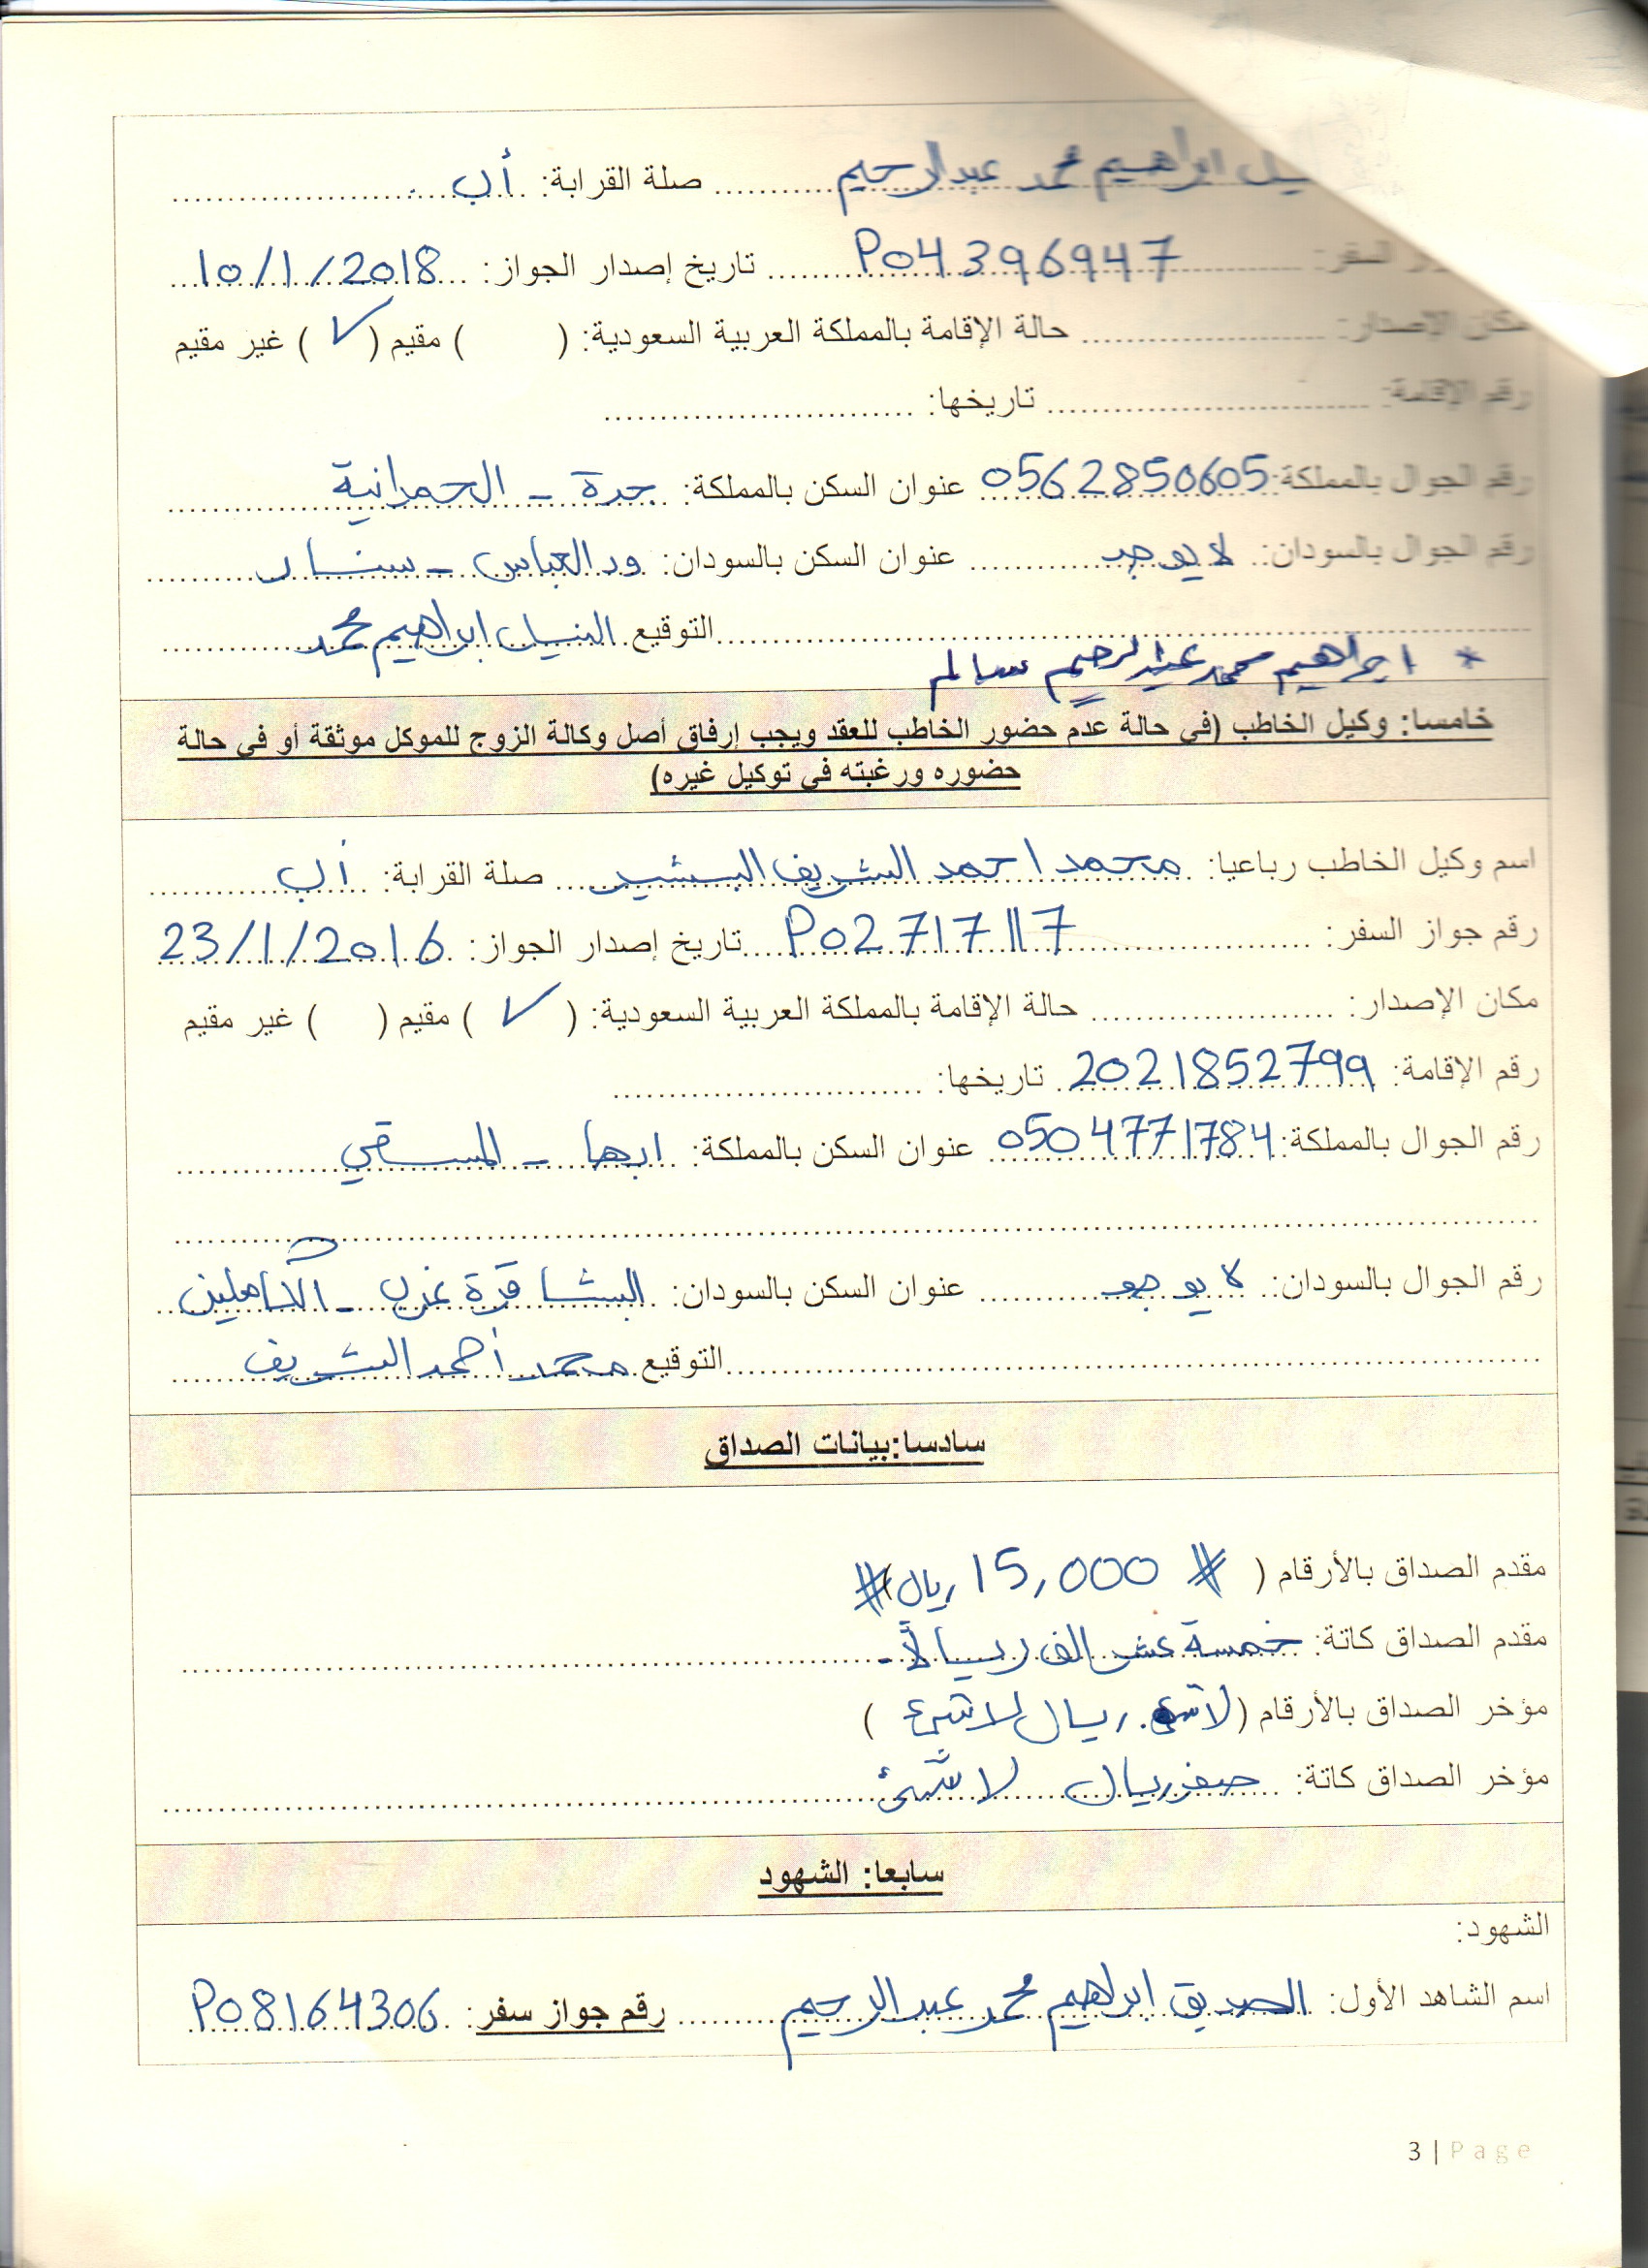 ابراهيم محمد عبدالرحيم صلة القرابة: أب
السفر: P04396947 تاريخ إصدار الجواز: 10/1/2018
مكان الإصدار: حالة الإقامة بالمملكة العربية السعودية: ( ) مقيم (✓) غير مقيم
رقم الإقامة: تاريخها:
رقم الجوال بالمملكة: 0562850605 عنوان السكن بالمملكة: جدة - الحمدانية
رقم الجوال بالسودان: لا يوجد عنوان السكن بالسودان: ود العباس - سنار
التوقيع ابراهيم محمد
* ابراهيم محمد عبدالرحيم سالم
خامسا: وكيل الخاطب (في حالة عدم حضور الخاطب للعقد ويجب إرفاق أصل وكالة الزوج للموكل موثقة أو في حالة
حضوره ورغبته في توكيل غيره)
اسم وكيل الخاطب رباعيا: محمد احمد الشريف البشير صلة القرابة: أب
رقم جواز السفر: P02717117 تاريخ إصدار الجواز: 23/1/2016
مكان الإصدار: حالة الإقامة بالمملكة العربية السعودية: (✓) مقيم ( ) غير مقيم
رقم الإقامة: 2021852799 تاريخها:
رقم الجوال بالمملكة: 0504771784 عنوان السكن بالمملكة: ابها - المسقي
رقم الجوال بالسودان: لا يوجد عنوان السكن بالسودان: البشاقرة غرب - الكاملين
التوقيع محمد أحمد الشريف
سادسا:بيانات الصداق
مقدم الصداق بالأرقام ( # 15,000 ريال#
مقدم الصداق كاتة: خمسة عشر الف ريالاً-
مؤخر الصداق بالأرقام ( لا شئ. ريال لا شئ )
مؤخر الصداق كاتة: صفر ريال لا شئ
سابعا: الشهود
الشهود:
اسم الشاهد الأول: الصديق ابراهيم محمد عبد الرحيم رقم جواز سفر: P08164306
3 | Page